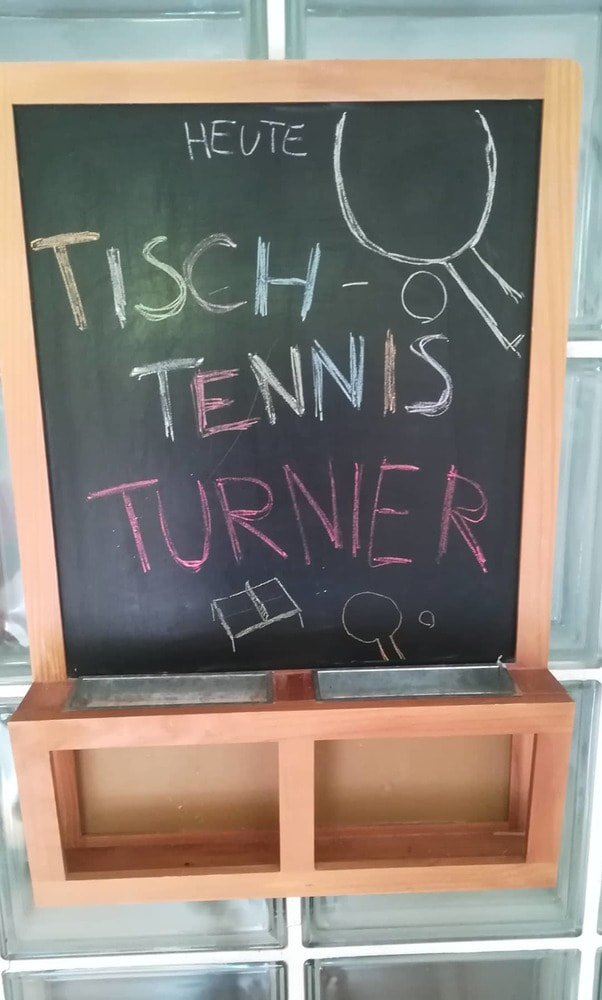 HEUTE
TISCH-
TENNIS
TURNIER